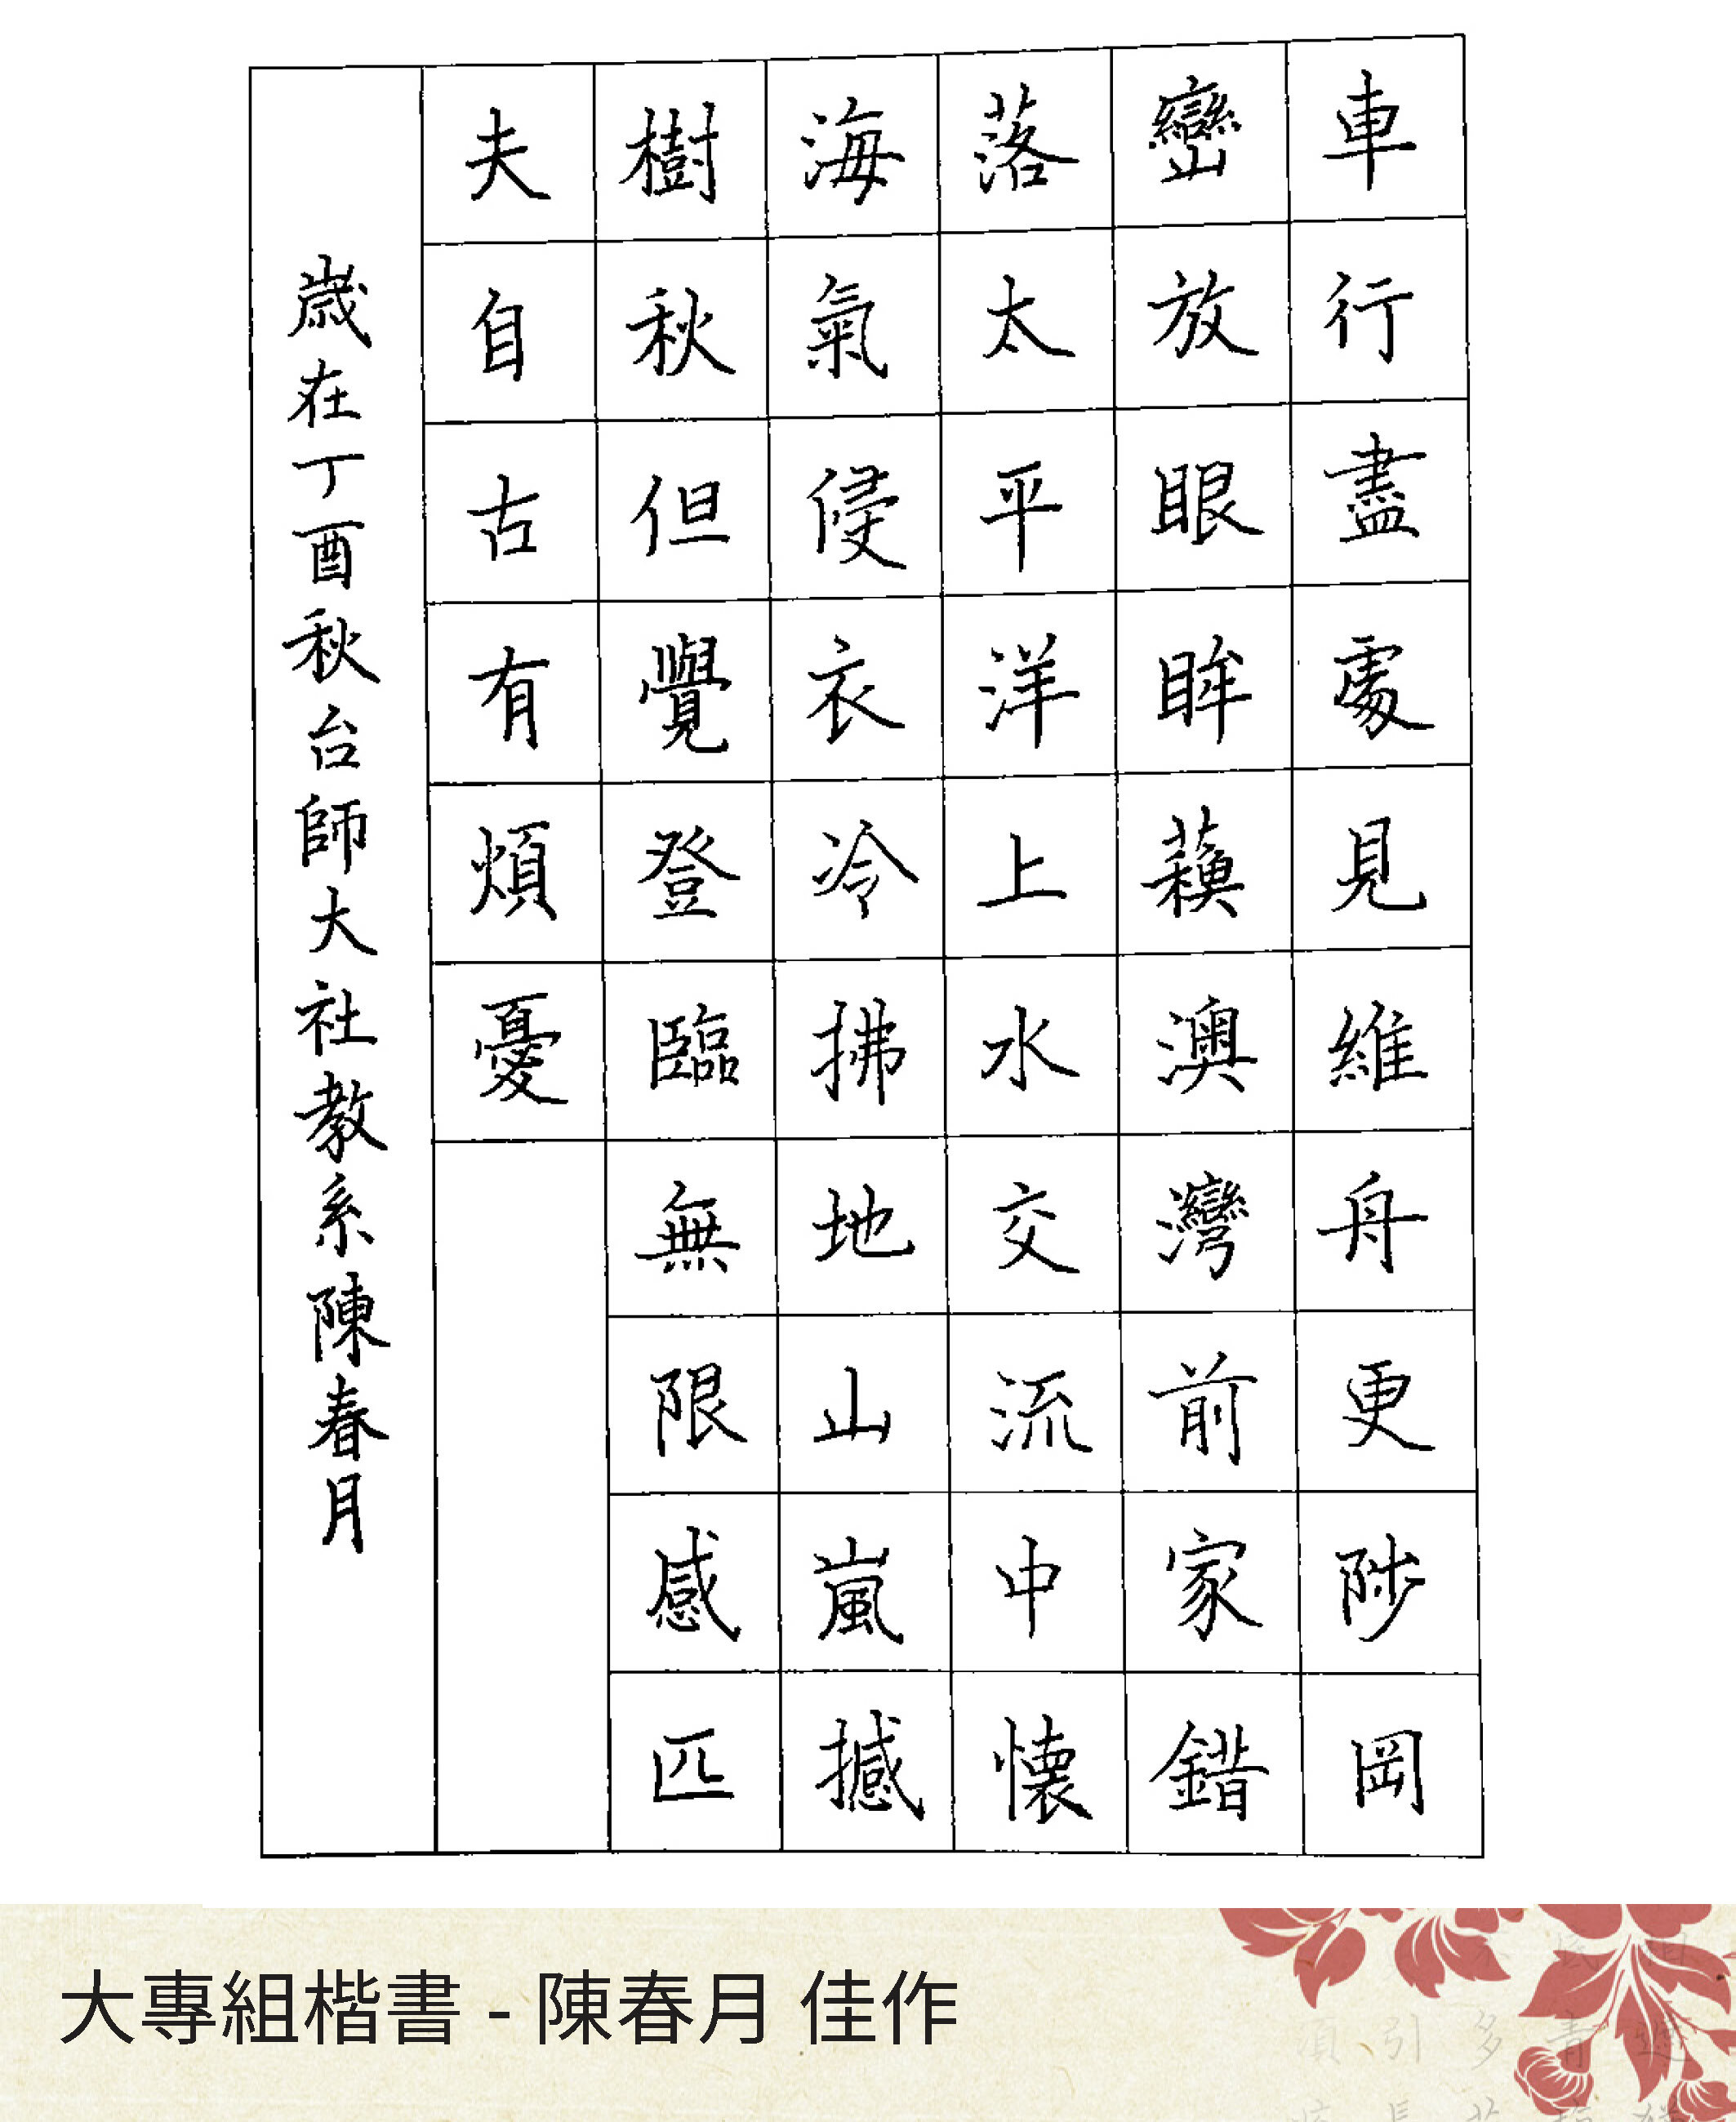 車行盡處見維舟更陟岡
巒放眼眸蘓澳灣前家錯
落太平洋上水交流中懐
海氣侵衣冷拂地山嵐撼
樹秋但覺登臨無限感匹
夫自古有煩憂
歲在丁酉秋台師大社教系陳春月
大專組楷書 - 陳春月 佳作